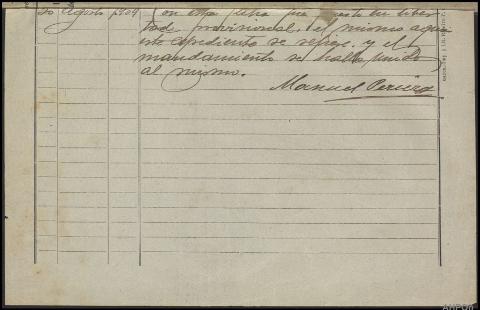 30 Agosto 1904 Con esta fecha fue puesto en liber
tad provisional, el mismo a quien
este expediente se refiere, y el
mandamiento se halla unido
al mismo.
Manuel Pereira
AHPOR